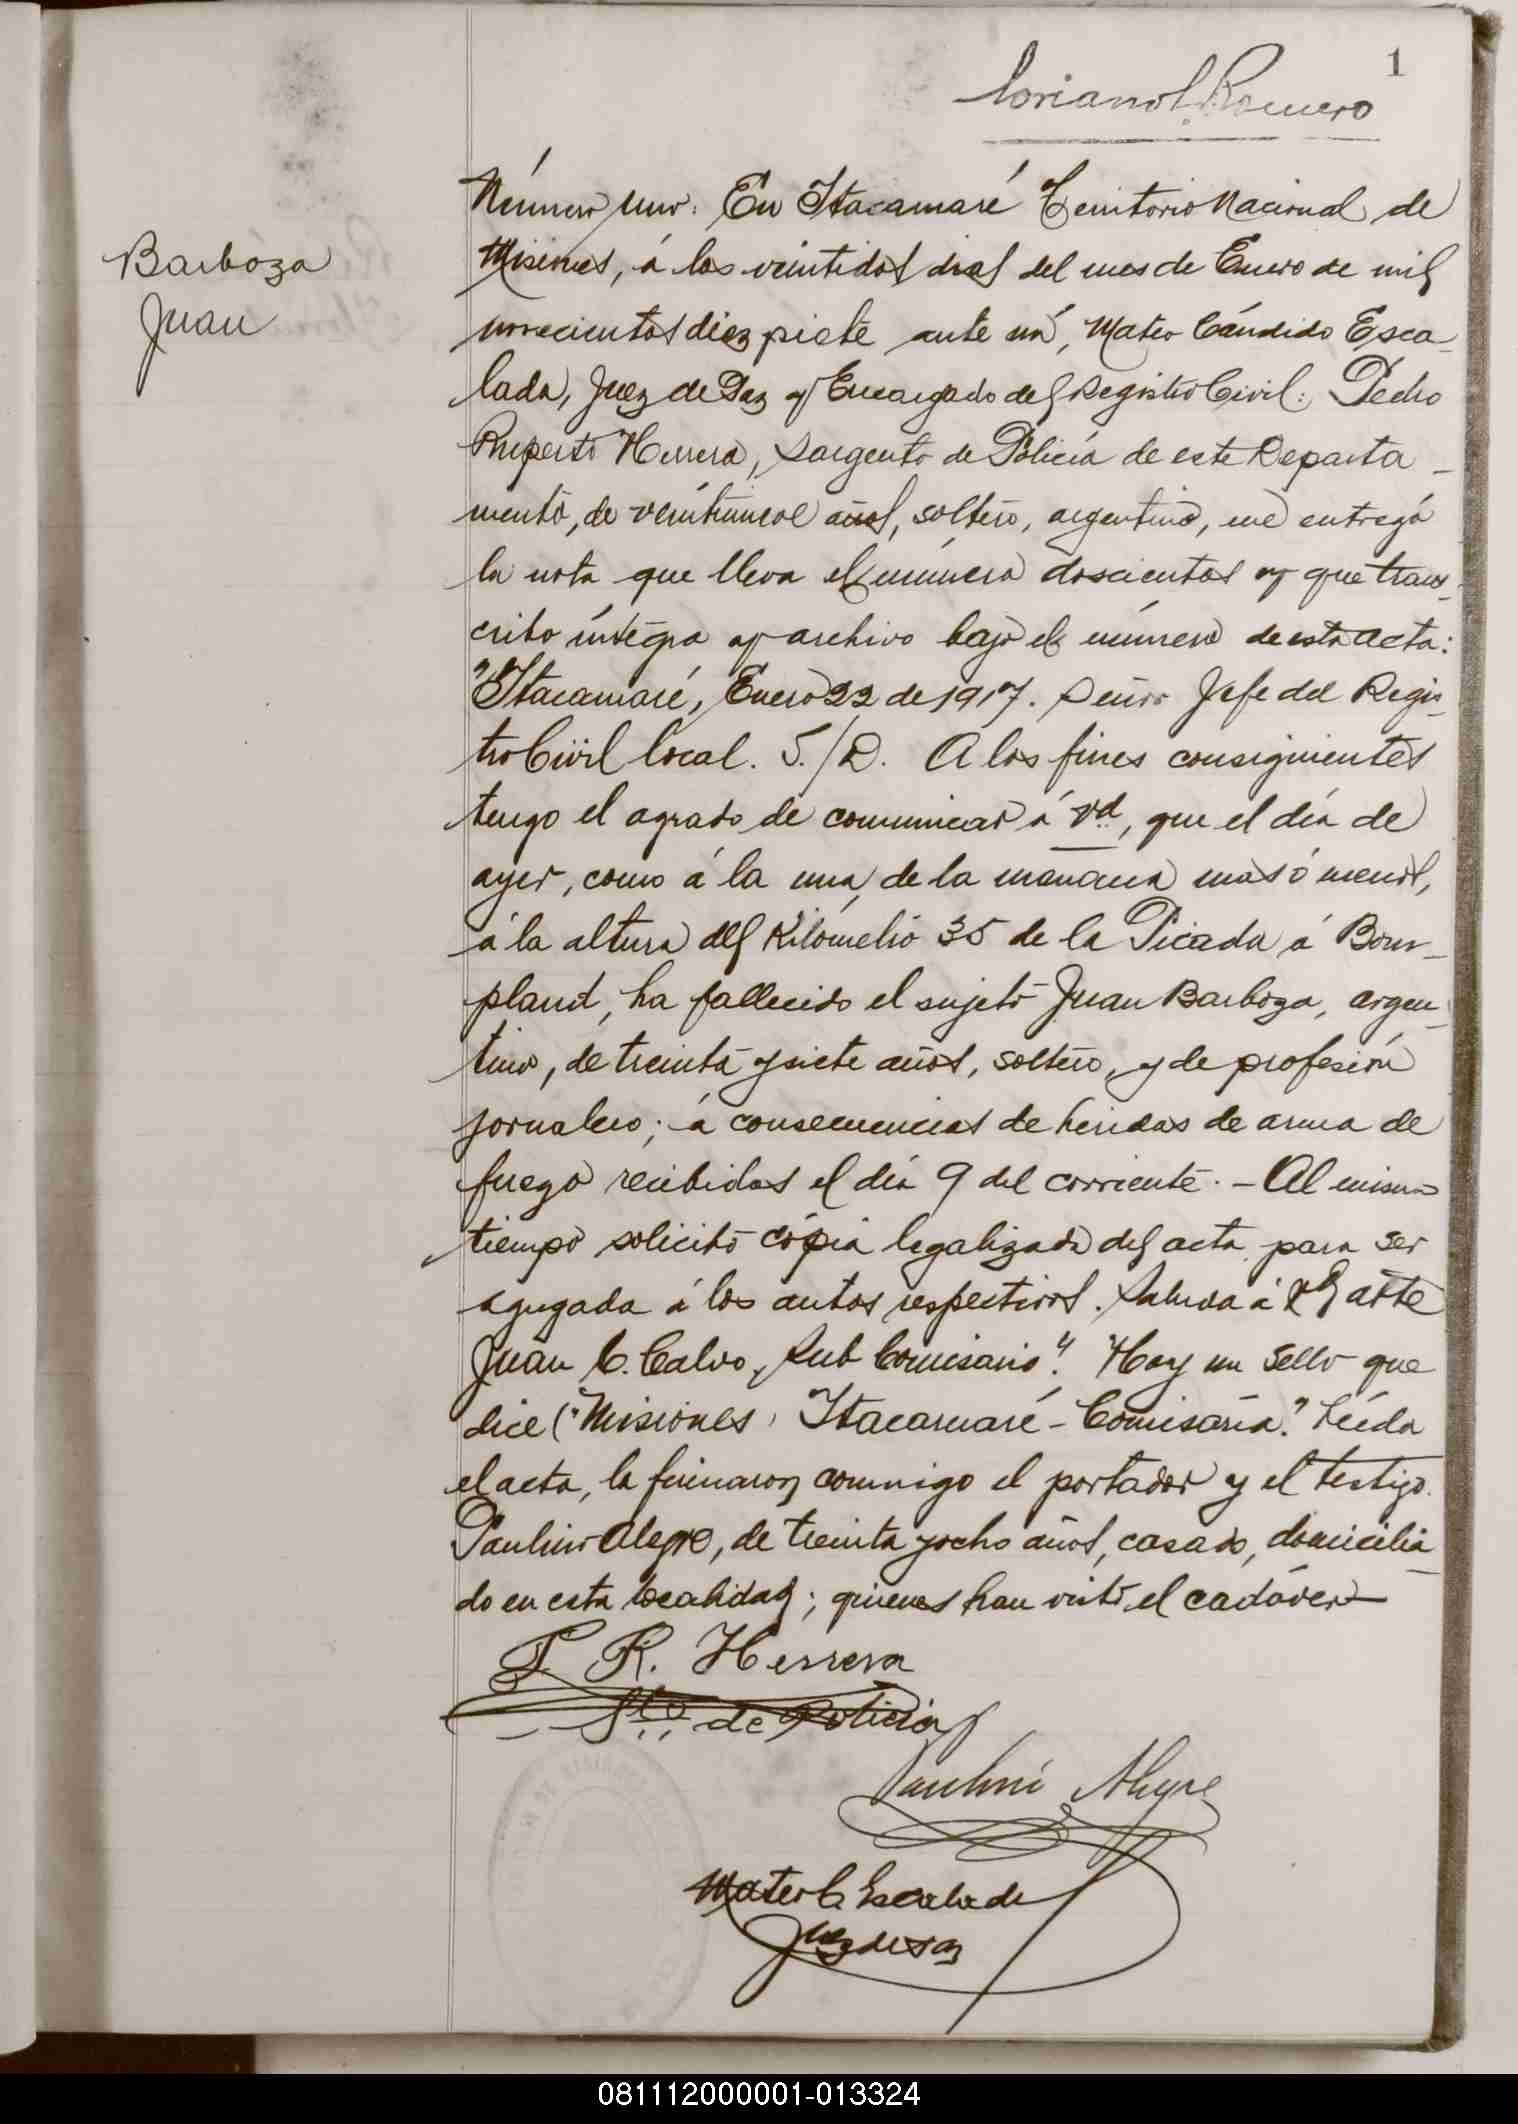 1
Loriano L. Romero
Barboza
Juan
Número uno: En Itacamaré Territorio Nacional de
Misiones, á los veintidos dias del mes de Enero de mil
novecientos diez siete ante mí, Mateo Cándido Esca-
lada, Juez de Paz y Encargado del Registro Civil: Pedro
Ruperto Herrera, Sargento de Policía de este Departa-
mento, de veintinueve años, soltero, argentino, me entregó
la nota que lleva el número doscientos y que trans-
cribo íntegra y archivo bajo el número de esta acta:
"Itacamaré, Enero 22 de 1917. Señor Jefe del Regis-
tro Civil local. S./D. A los fines consiguientes
tengo el agrado de comunicar á Vd, que el día de
ayer, como á la una, de la manana mas ó menos,
á la altura del Kilómetro 35 de la Picada á Bon-
pland, ha fallecido el sujeto Juan Barboza, argen-
tino, de treinta y siete años, soltero, y de profesión
jornalero; á consecuencias de heridas de arma de
fuego recibidas el día 9 del corriente. - Al mismo
tiempo solicito cópia legalizada del acta para ser
agregada á los autos respectivos. Saluda á Vd atte
Juan C. Calvo, Sub Comisario". Hay un sello que
dice ("Misiones, Itacamaré - Comisaría." Leída
el acta, la firmaron conmigo el portador y el testigo
Paulino Alegre, de treinta y ocho años, casado, domicilia-
do en esta localidad; quienes han visto el cadáver
P. R. Herrera
Sto de Policia
Paulino Alegre
Mateo C. Escalada
Juez de Paz
081112000001-013324